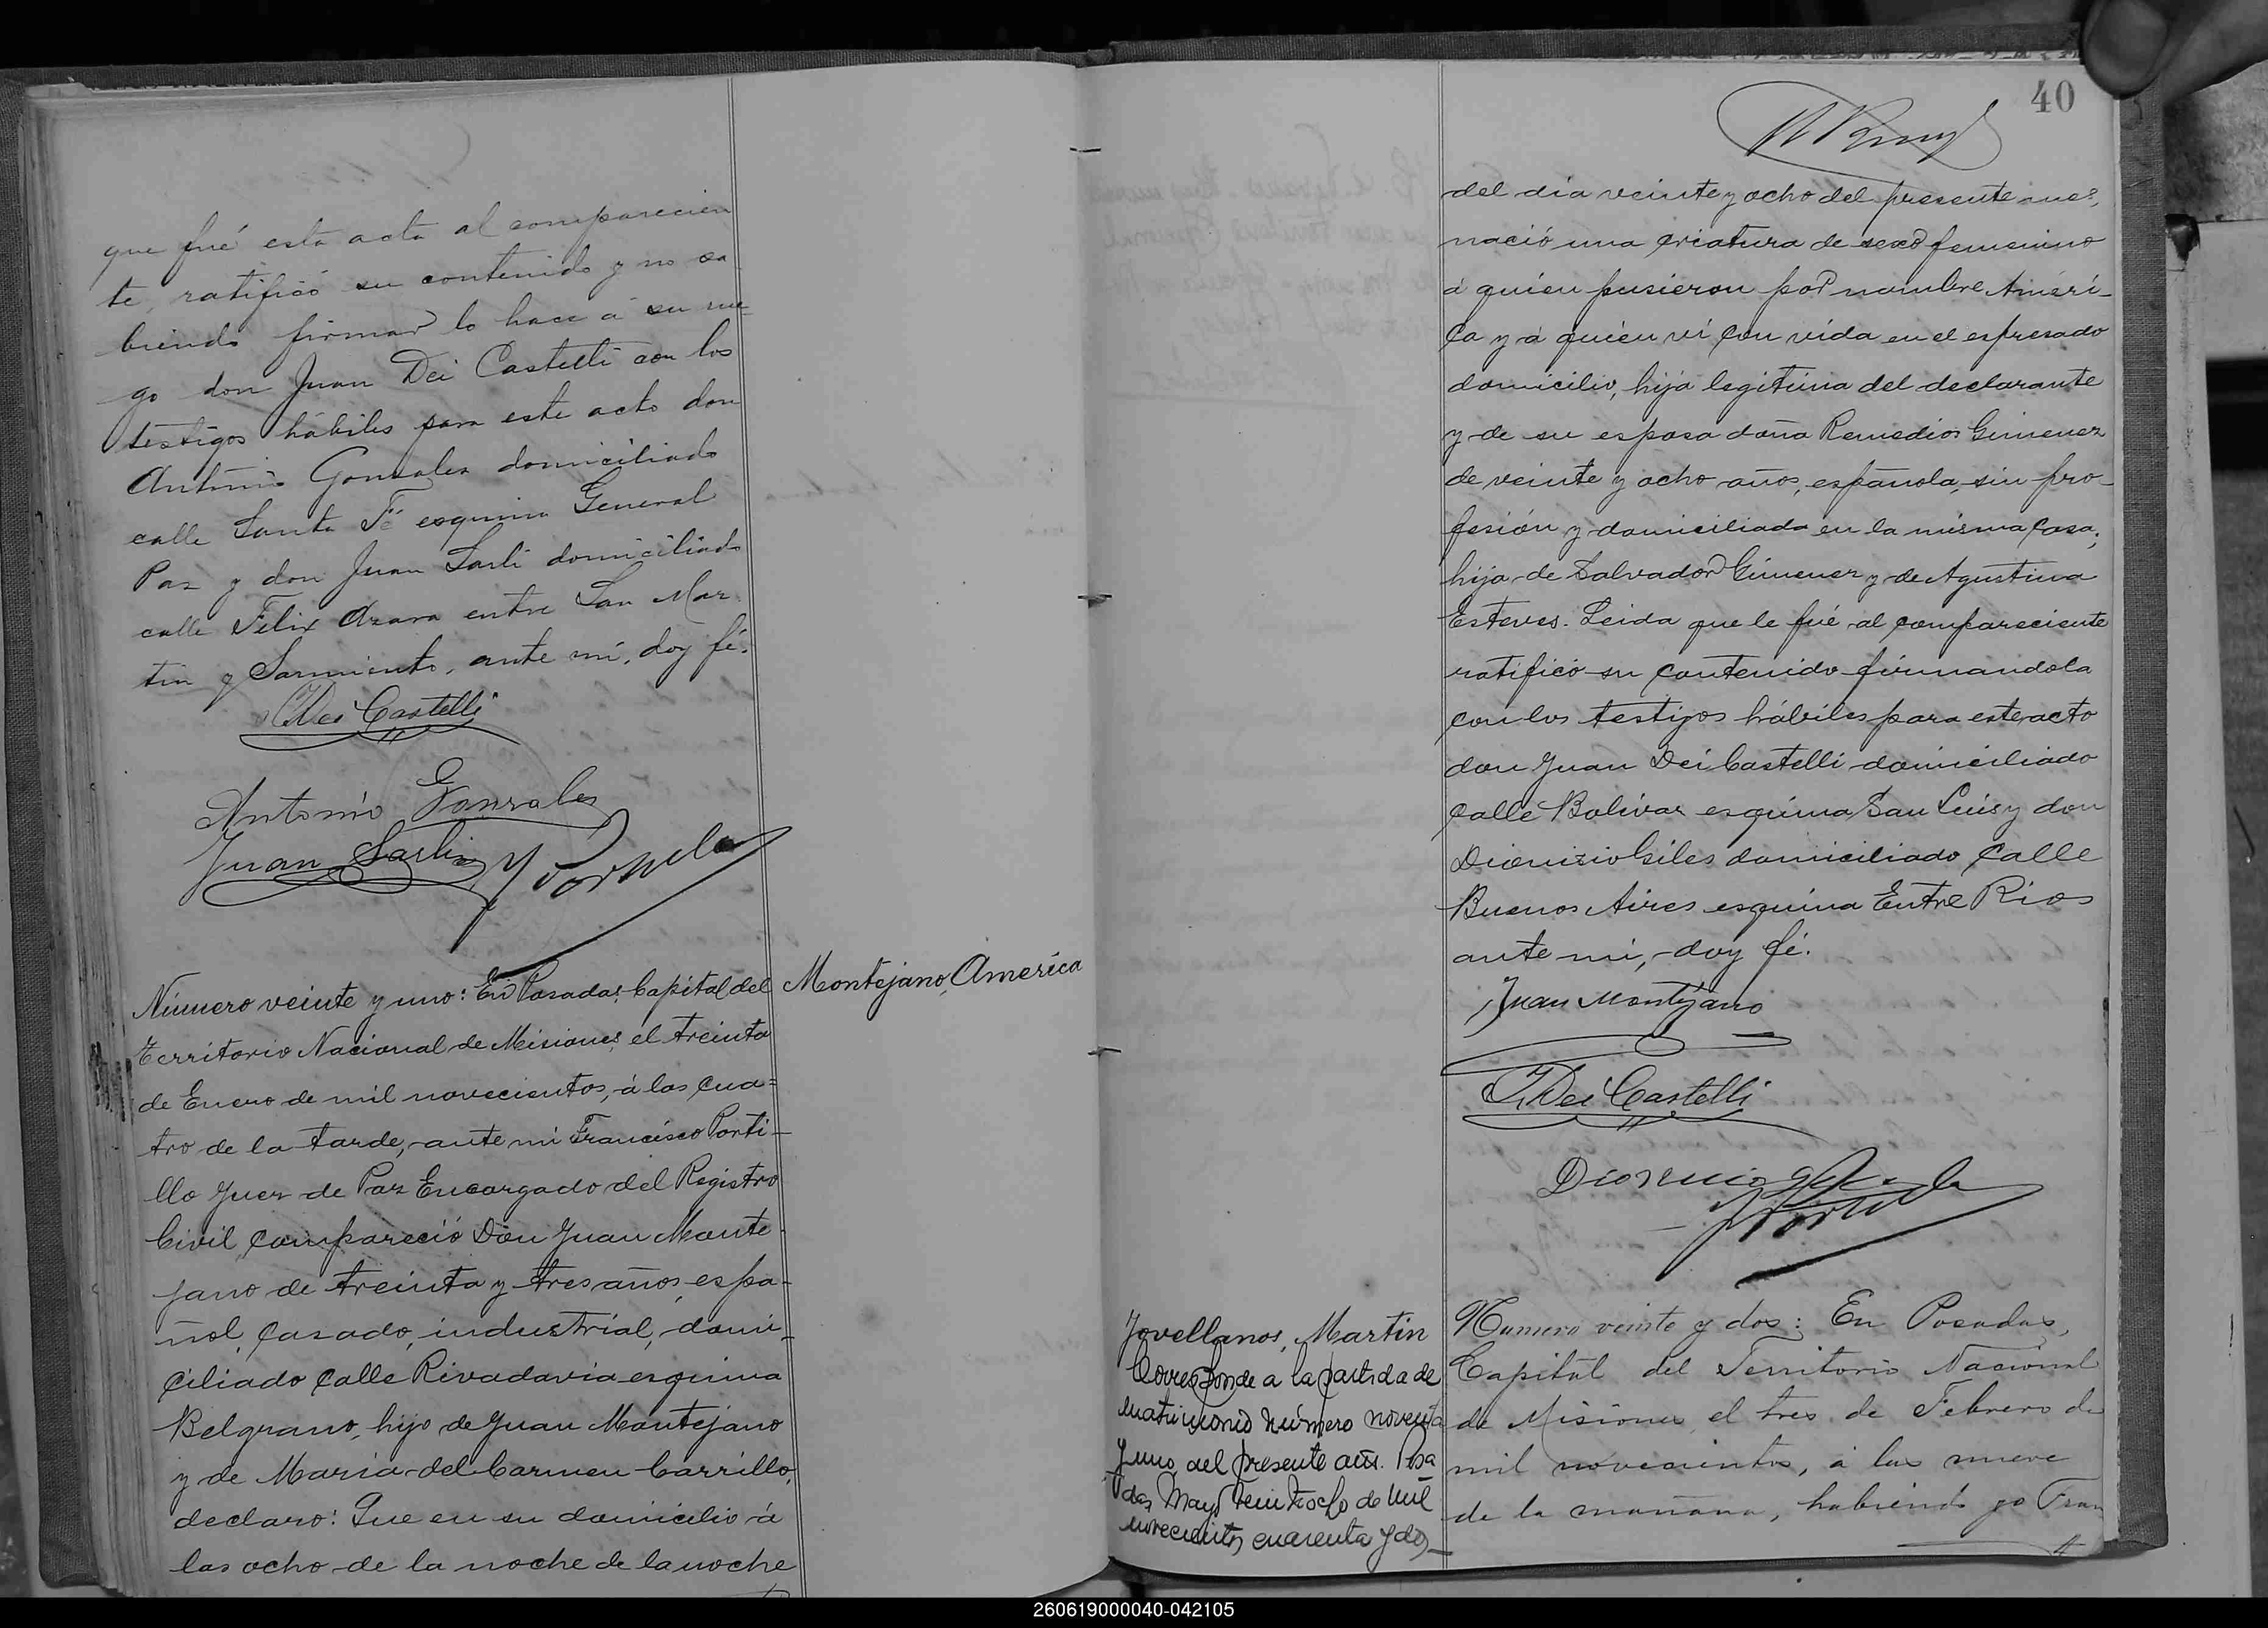 que fué esta acta al comparecien
te, ratificó su contenido y no sa
biendo firmar lo hace á su rue
go don Juan Dei Castelli con los
testigos hábiles para este acto don
Antonio Gonzalez domiciliado
calle Santa Fé esquina General
Paz y don Juan Sarli domiciliado
calle Felix Azara entre San Mar
tin y Sarmiento, ante mí, doy fé.
J Dei Castelli
Antonio Gonzales
Juan Sarli
Número veinte y uno: En Posadas Capital del
Territorio Nacional de Misiones, el treinta
de Enero de mil novecientos, á las cua=
tro de la tarde, ante mi Francisco Porti-
llo Juez de Paz Encargado del Registro
Civil, compareció Don Juan Monte-
jano de treinta y tres años, espa-
ñol, casado, industrial, domi-
ciliado calle Rivadavia esquina
Belgrano, hijo de Juan Montejano
y de Maria del Carmen Carrillo,
declaro: Que en su domicilio á
las ocho de la noche de la noche
Montejano, America
40
del dia veinte y ocho del presente mes,
nació una criatura de sexo femenino
á quien pusieron por nombre Améri-
ca y á quien ví con vida en el espresado
domicilio, hija legitima del declarante
y de su esposa doña Remedios Gimenez
de veinte y ocho años, española, sin pro-
fesión y domiciliada en la misma casa;
hija de Salvador Gimenez y de Agustina
Esteves. Leida que le fué al compareciente
ratificó su contenido firmandola
con los testigos hábiles para este acto
don Juan Dei Castelli domiciliado
calle Bolivar esquina San Luis y don
Dionisio Giles domiciliado calle
Buenos Aires esquina Entre Rios
ante mi, doy fé.
Juan Montejano
J. Dei Castelli
Jovellanos, Martin
Corresponde a la partida de
matrimonio número noventa
y uno del presente año. Posa
das Mayo veintiocho de mil
novecientos cuarenta y dos
Numero veinte y dos: En Posadas,
Capital del Territorio Nacional
de Misiones, el tres de Febrero de
mil novecientos, á las nueve
de la mañana, habiendo yo Fran
260619000040-042105